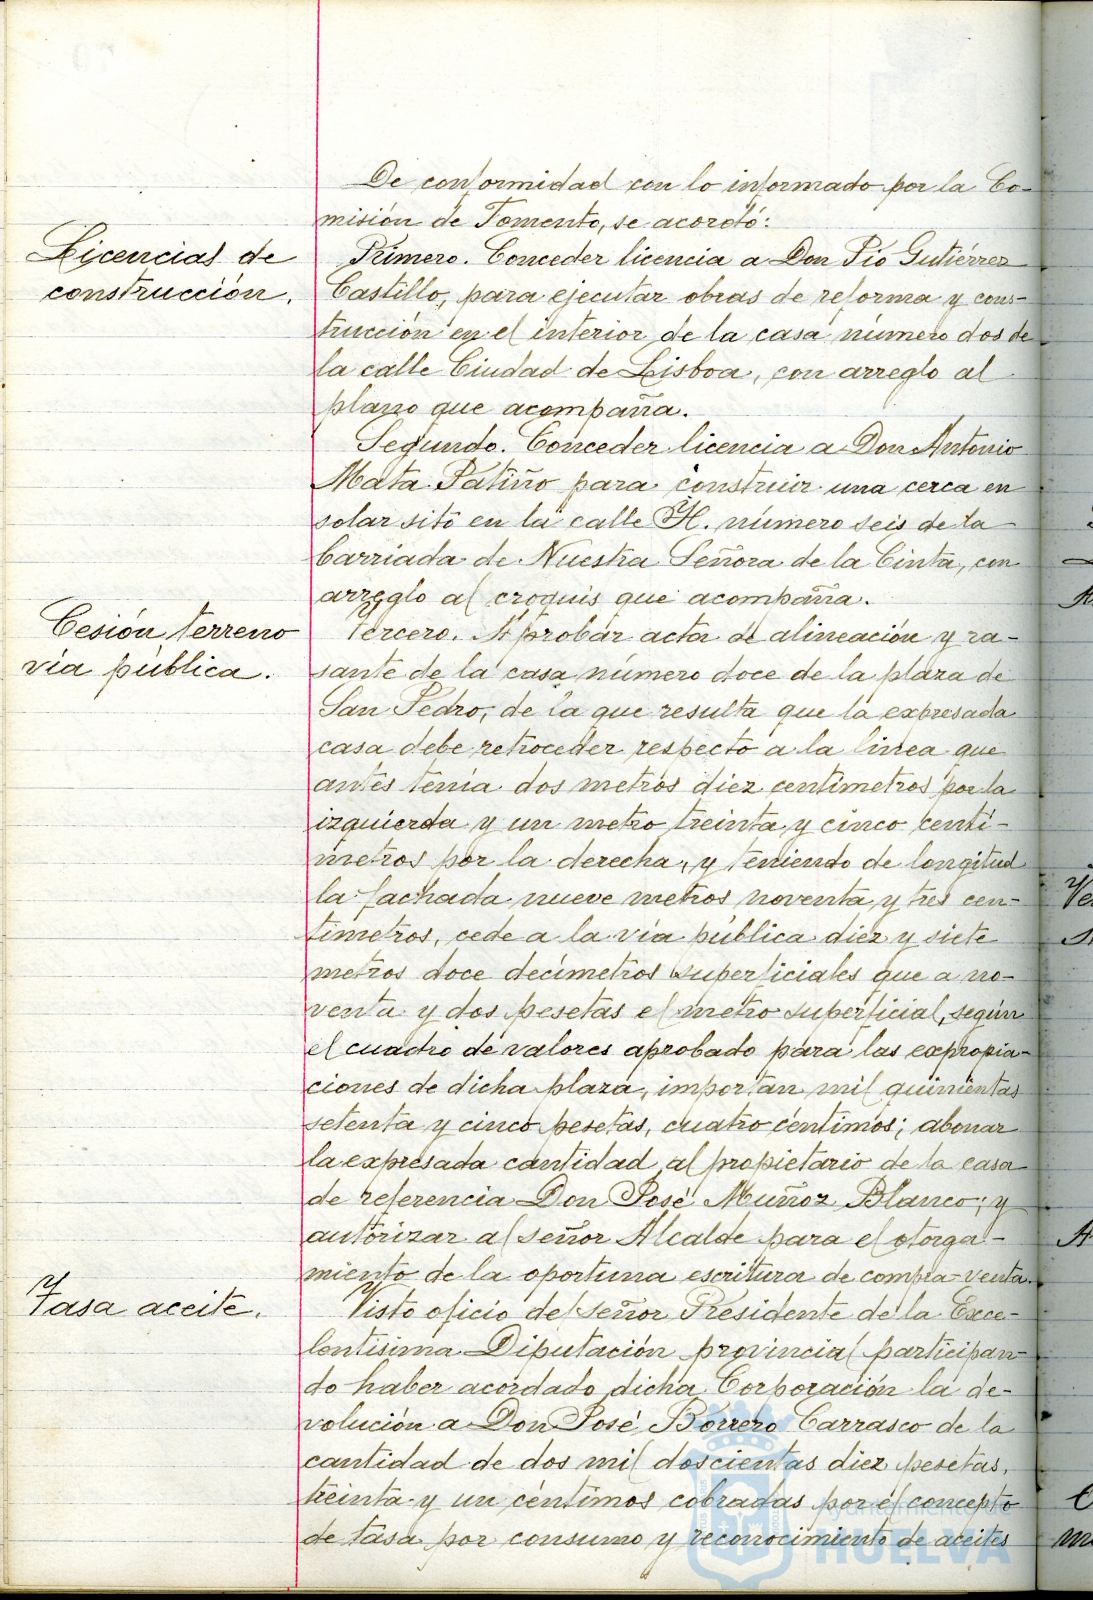 De conformidad con lo informado por la Co-
misión de Fomento, se acordó:
Licencias de
construcción.
Primero. Conceder licencia a Don Pío Gutiérrez
Castillo, para ejecutar obras de reforma y cons-
trucción en el interior de la casa número dos de
la calle Ciudad de Lisboa, con arreglo al
plano que acompaña.
Segundo. Conceder licencia a Don Antonio
Mata Patiño para construir una cerca en
solar sitó en la calle H. número seis de la
barriada de Nuestra Señora de la Cinta, con
arreglo al croquis que acompaña.
Cesión terreno
vía pública.
Tercero. Aprobar acta de alineación y ra-
sante de la casa número doce de la plaza de
San Pedro, de la que resulta que la expresada
casa debe retroceder respecto a la línea que
antes tenía dos metros diez centímetros por la
izquierda y un metro treinta y cinco centí-
metros por la derecha, y teniendo de longitud
la fachada nueve metros noventa y tres cen-
tímetros, cede a la vía pública diez y siete
metros doce decímetros superficiales que a no-
venta y dos pesetas el metro superficial, según
el cuadro de valores aprobado para las expropia-
ciones de dicha plaza, importan mil quinientas
setenta y cinco pesetas, cuatro céntimos; abonar
la expresada cantidad al propietario de la casa
de referencia Don José Muñoz Blanco; y
autorizar al señor Alcalde para el otorga-
miento de la oportuna escritura de compra-venta.
Tasa aceite.
Visto oficio del señor Presidente de la Exce-
lentísima Diputación provincial participan-
do haber acordado dicha Corporación la de-
volución a Don José Borrero Carrasco de la
cantidad de dos mil doscientas diez pesetas,
treinta y un céntimos cobradas por el concepto
de tasa por consumo y reconocimiento de aceites
Ayuntamiento de
HUELVA